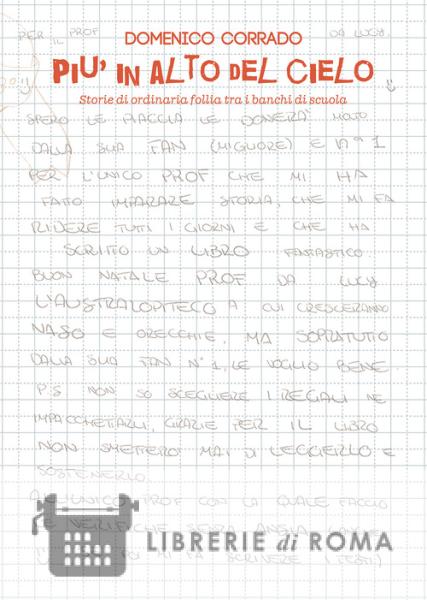 PER IL PROF DA LUCY.
DOMENICO CORRADO
PIU' IN ALTO DEL CIELO
Storie di ordinaria follia tra i banchi di scuola
SPERO LE PIACCIA LE DONERÀ MOLTO
DALLA SUA FAN (MIGLIORE) E n° 1
PER L'UNICO PROF CHE MI HA
FATTO IMPARARE STORIA, CHE MI FA
RIDERE TUTTI I GIORNI E CHE HA
SCRITTO UN LIBRO FANTASTICO.
BUON NATALE PROF DA LUCY
L'AUSTRALOPITECO A CUI CRESCERANNO
NASO E ORECCHIE, MA SOPRATUTTO
DALLA SUA FAN N° 1, LE VOGLIO BENE.
P.S NON SO SCEGLIERE I REGALI NE
IMPACCHETTARLI, GRAZIE PER IL LIBRO
NON SMETTERÒ MAI DI LEGGERLO E
SOSTENERLO.
ALL'UNICO PROF CON LA QUALE FACCIO
LE VERIFICHE SENZA ANSIA
POI MI FA SCRIVERE I TESTI)
LIBRERIE di ROMA